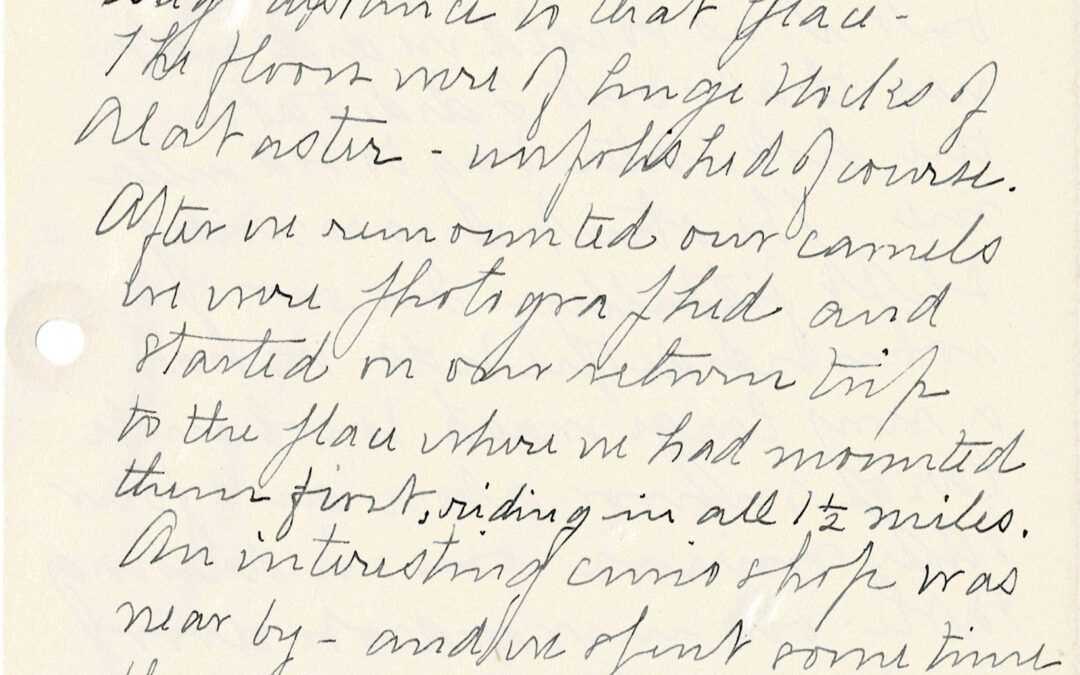 long distance to that place -
The floors were of huge blocks of
Alabaster - unpolished of course.
After we remounted our camels
we were photographed and
started on our return trip
to the place where we had mounted
them first, riding in all 1½ miles.
An interesting curio shop was
near by - and we spent some time